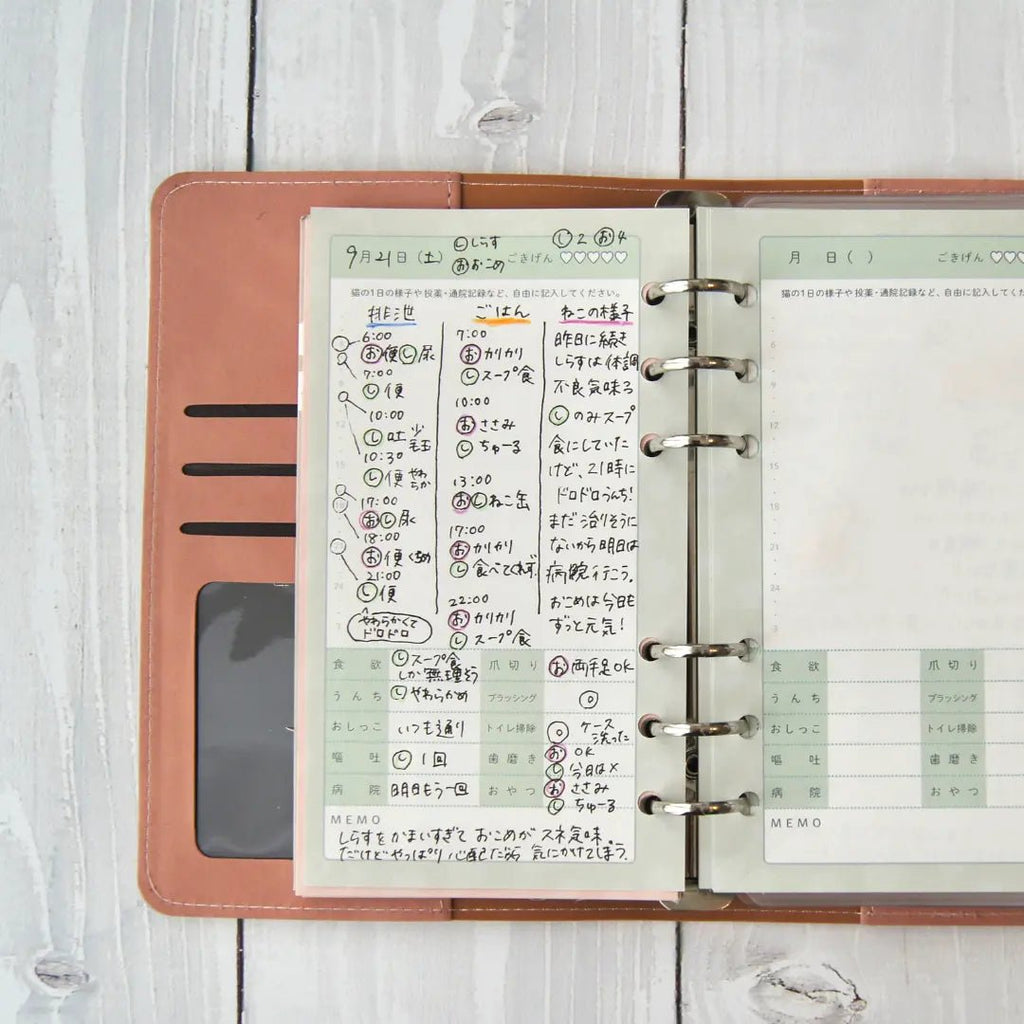 9月21日(土) し しらす お おこめ ごきげん ♡♡♡♡♡ し2 お4
猫の1日の様子や投薬・通院記録など、自由に記入してください。
排泄
6:00
お便 し尿
7:00
し便
10:00
し吐 少 毛玉
10:30
し便 やわらか
17:00
おし尿
18:00
お便 くちめ
21:00
し便
やわらかくて
ドロドロ
ごはん
7:00
おカリカリ
しスープ食
10:00
おささみ
しちゅーる
13:00
おしねこ缶
17:00
おカリカリ
し食べてくれず
22:00
おカリカリ
しスープ食
ねこの様子
昨日に続き
しらすは体調
不良気味
しのみスープ
食にしていた
けど、21時に
ドロドロうんち!
まだ治りそうに
ないから明日は
病院行こう。
おこめは今日も
ずっと元気!
6
9
12
15
18
21
24
3
食欲 しスープ食
しか無理そう
爪切り お両手足OK
うんち しやわらかめ
ブラッシング ◎
おしっこ いつも通り
トイレ掃除 ◎ ケース
洗った
嘔吐 し1回
歯磨き おOK
し今日は×
病院 明日もう一回
おやつ おささみ
しちゅーる
MEMO
しらすをかまいすぎて おこめがスネ気味。
だけどやっぱり心配だから 気にかけてしまう。
月 日( ) ごきげん ♡♡
猫の1日の様子や投薬・通院記録など、自由に記入してくだ
6
9
12
15
18
21
24
3
食欲 爪切り
うんち ブラッシング
おしっこ トイレ掃除
嘔吐 歯磨き
病院 おやつ
MEMO